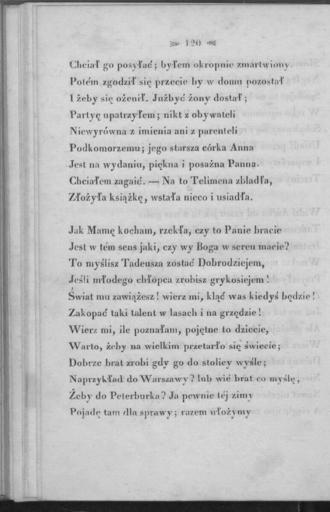 120
Chciał go posyłać; byłem okropnie zmartwiony.
Potém zgodził się przecie by w domu pozostał
I żeby się ożenił. Jużbyć żony dostał;
Partyę upatrzyłem; nikt z obywateli
Niewyrówna z imienia ani z parenteli
Podkomorzemu; jego starsza córka Anna
Jest na wydaniu, piękna i posażna Panna.
Chciałem zagaić. — Na to Telimena zbladła,
Złożyła książkę, wstała nieco i usiadła.
Jak Mamę kocham, rzekła, czy to Panie bracie
Jest w tém sens jaki, czy wy Boga w sercu macie?
To myślisz Tadeusza zostać Dobrodziejem,
Jeśli młodego chłopca zrobisz grykosiejem!
Świat mu zawiążesz! wierz mi, kląć was kiedyś będzie!
Zakopać taki talent w lasach i na grzędzie!
Wierz mi, ile poznałam, pojętne to dziecie,
Warto, żeby na wielkim przetarło się świecie;
Dobrze brat zrobi gdy go do stolicy wyśle;
Naprzykład do Warszawy? lub wié brat co myślę,
Żeby do Peterburka? Ja pewnie téj zimy
Pojadę tam dla sprawy; razem ułożymy